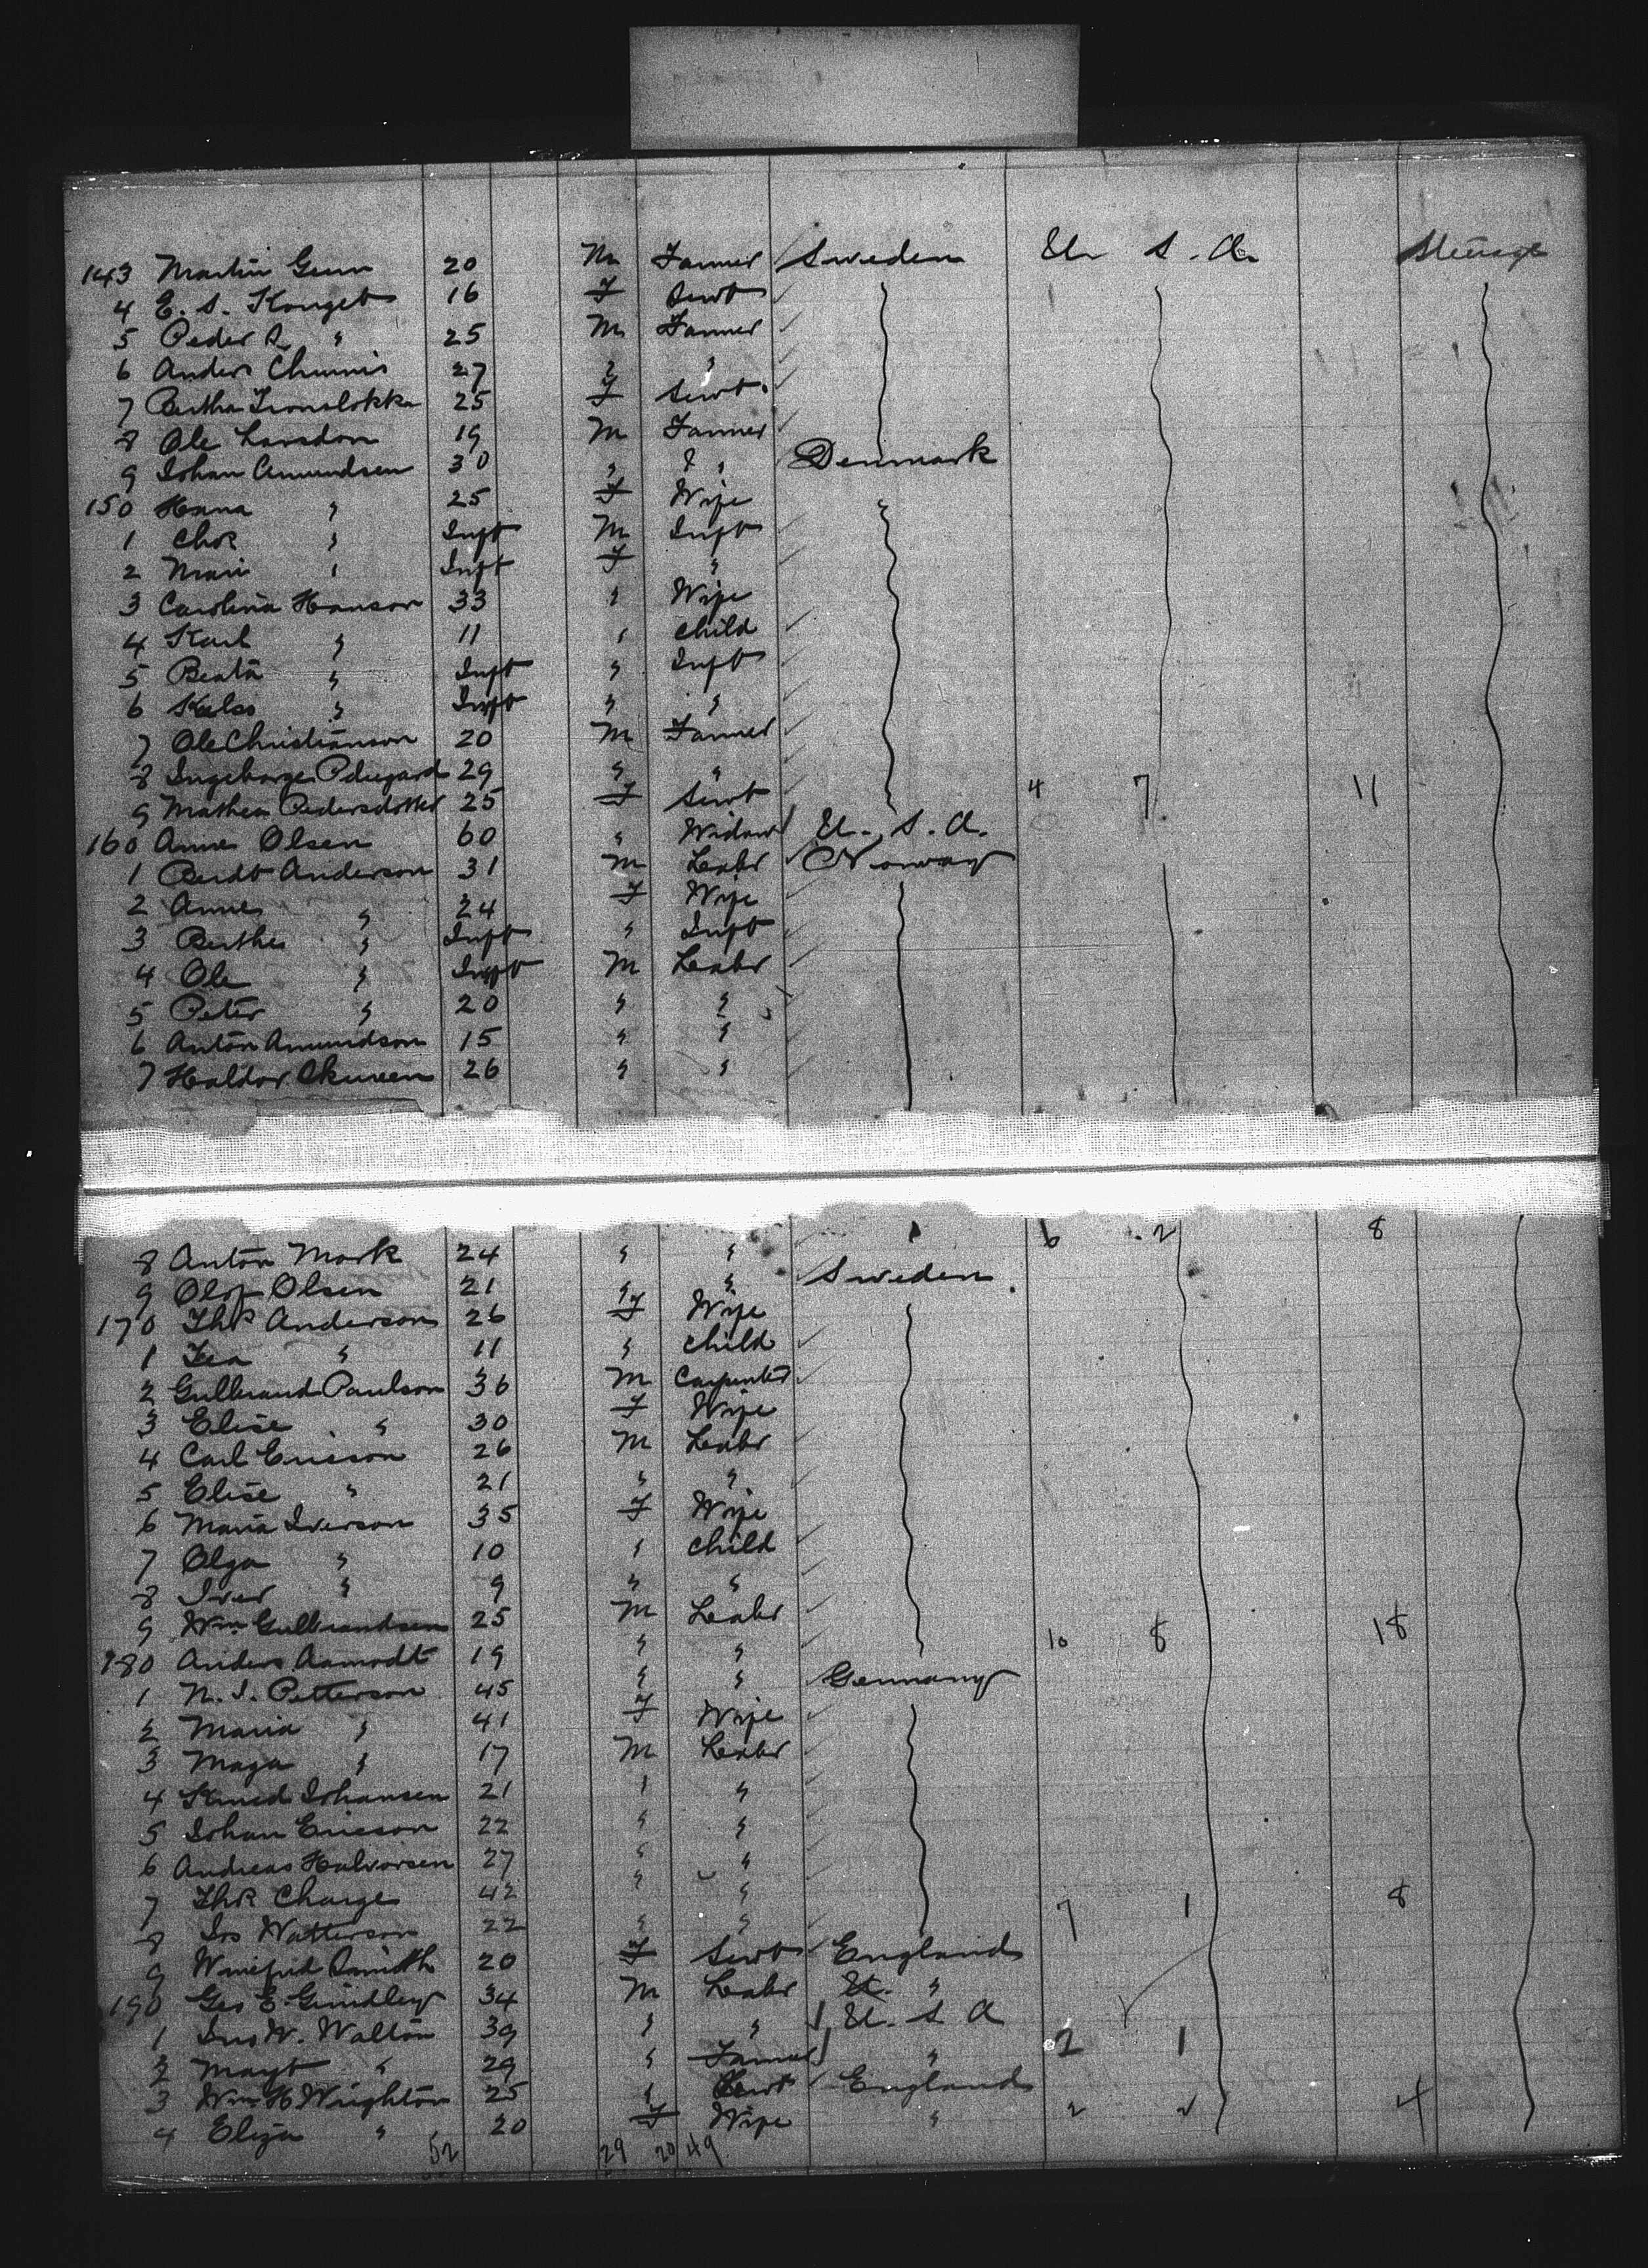 143 Martin Gunn 20 M Farmer Sweden U. S. A. Steerage
4 E. S. Konget 16 F Servt
5 Peder A " 25 M Farmer
6 Anders 27 " "
7 Bertha 25 F Servt
8 Ole 19 M Farmer
9 Johan Amundsen 30 " " Denmark
150 Hana " 25 F Wife
1 Chr " Inft M Inft
2 Mari " Inft F "
3 Carolina Hanson 33 " Wife
4 Karl " 11 " Child
5 Beata " Inft " Inft
6 " Inft " "
7 Ole Christianson 20 M Farmer
8 Ingeborge 29 " " 4 7 11
9 Mathea Pedersdotter 25 F Servt
160 Anne Olsen 60 " Widow U. S. A.
1 Berdt Anderson 31 M Labr Norway
2 Anne " 24 F Wife
3 Berthe " Inft " Inft
4 Ole " Inft M Labr
5 Peter " 20 " "
6 Anton Amundson 15 " "
7 Haldor 26 " "
8 Anton Mork 24 " " 6 2 8
9 Olof Olsen 21 " " Sweden
170 Anderson 26 F Wife
1 " 11 " Child
2 Gulbrand Paulson 36 M Carpenter
3 Elise " 30 F Wife
4 Carl Ericson 26 M Labr
5 Elise " 21 " "
6 Maria Iverson 35 F Wife
7 Olga " 10 " Child
8 Iver " 9 " "
9 Wm Gulbrandsen 25 M Labr 10 8 18
180 Anders Aamodt 19 " "
1 N. J. Petterson 45 " " Germany
2 Maria " 41 F Wife
3 Maga " 17 M Labr
4 Knud Johansen 21 " "
5 Johan Ericson 22 " "
6 Andreas Halvorsen 27 " "
7 Charge 42 " " 7 1 8
8 Jos Watterson 22 " "
9 Winefrid Smith 20 F Servt England
190 Geo E. Grindley 34 M Labr U. "
1 Jno W. Walton 39 " " U. S. A
2 Magt " 29 " Farmer " 2 1
3 Wm H Wrighton 25 " Servt England
4 Eliza " 20 F Wife " 2 2 4
52 29 20 49